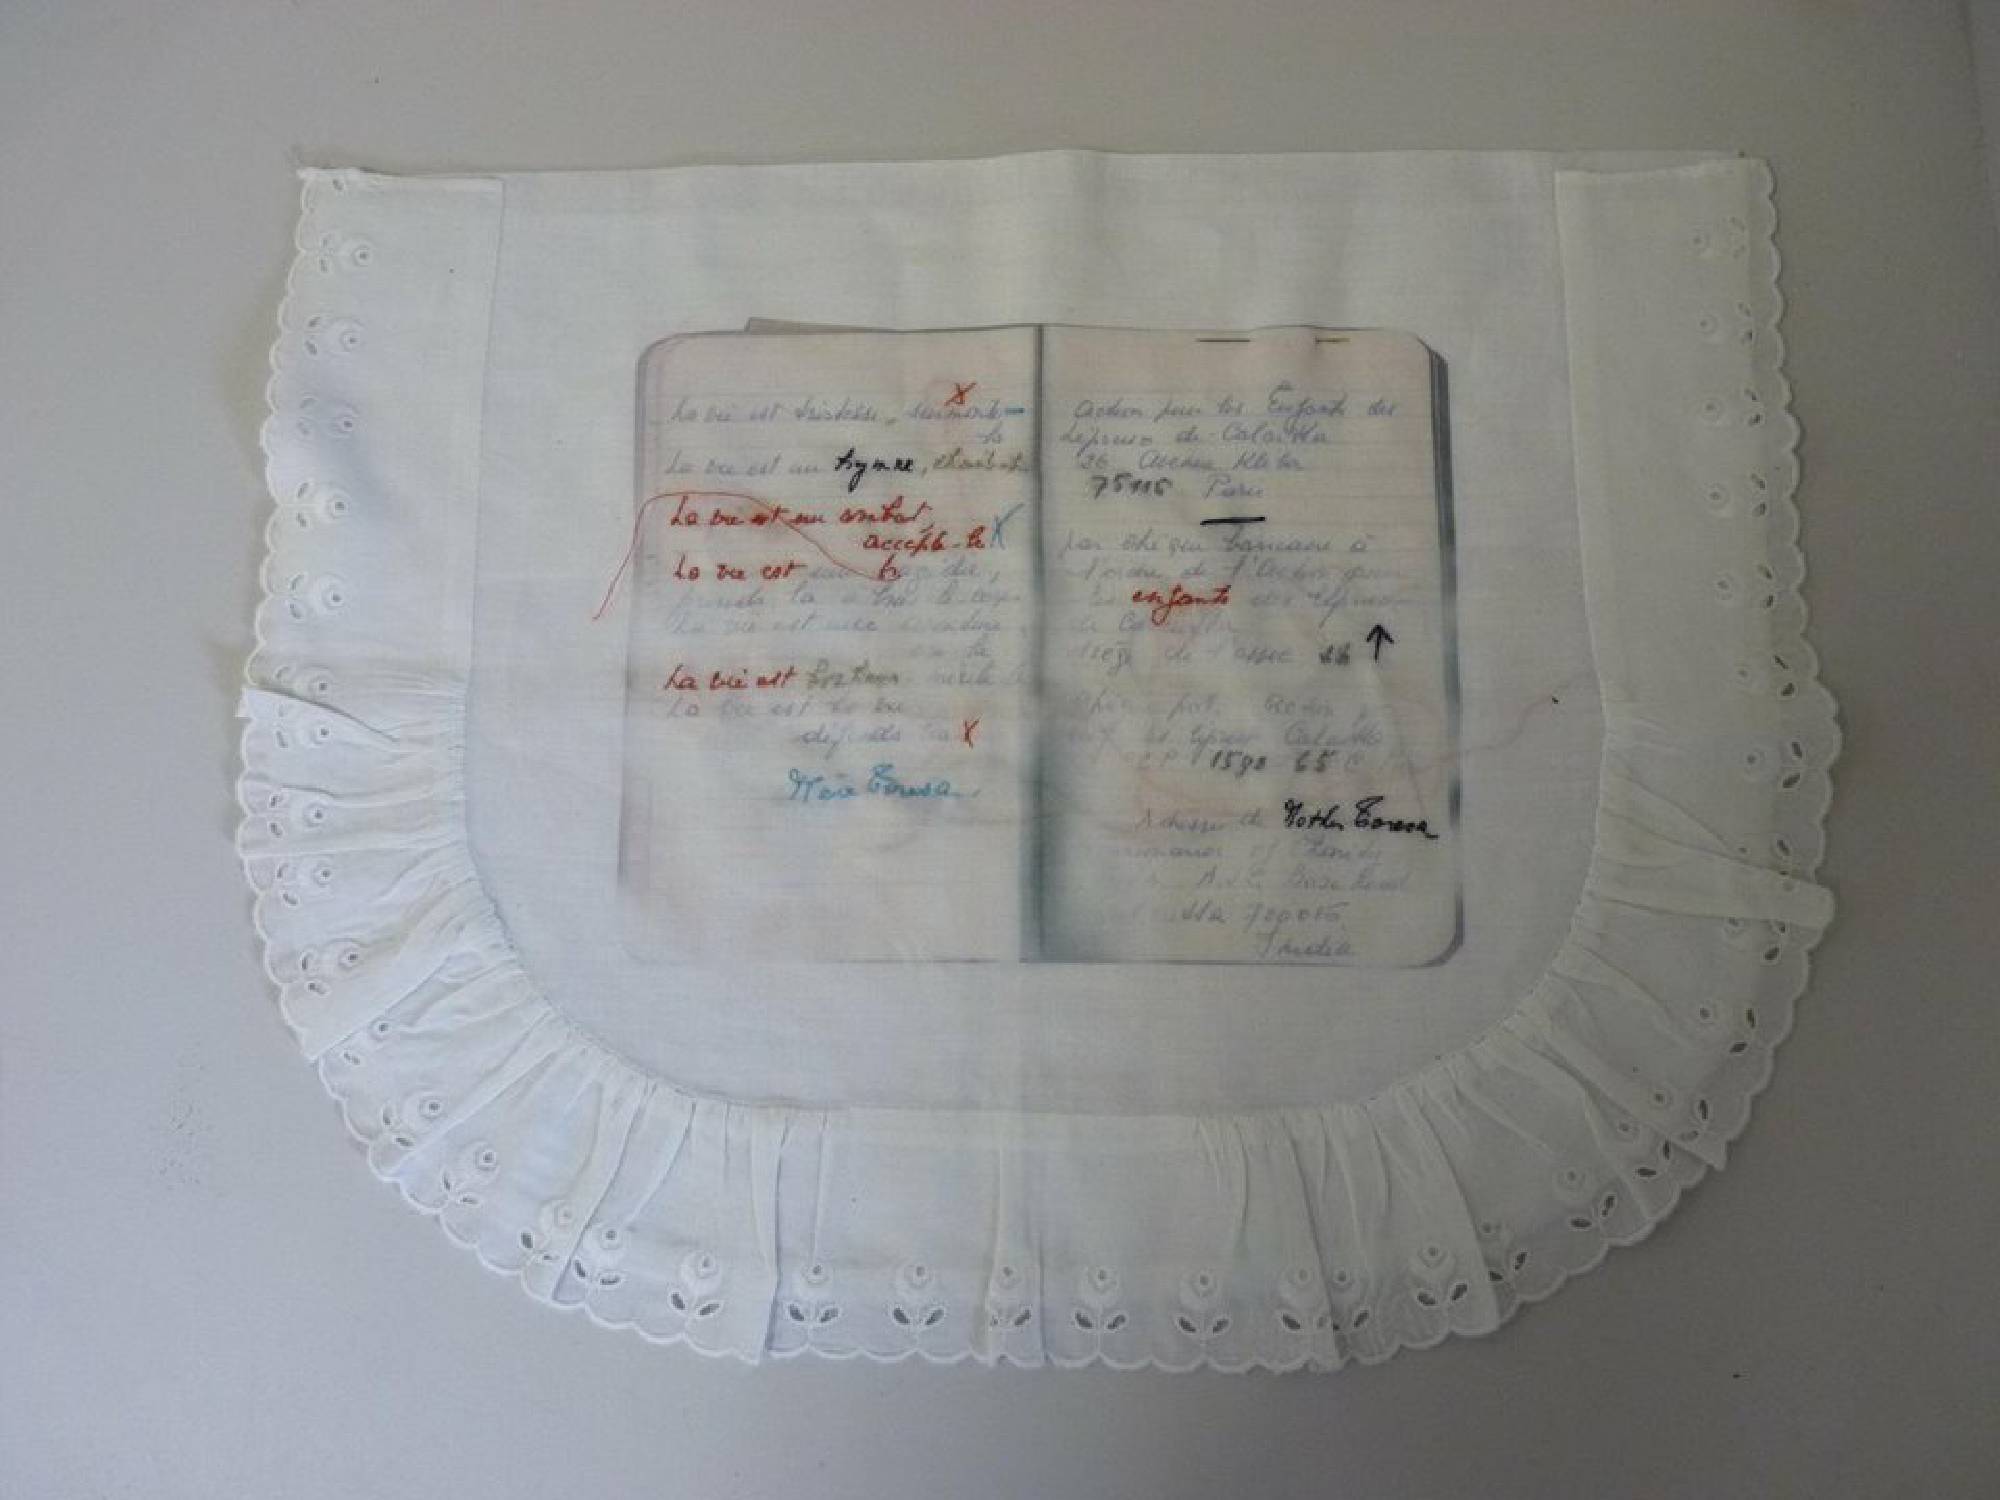 La vie est tristesse, surmonte-
la
La vie est un hymne, chante-le
La vie est un combat,
accepte-le
La vie est une tragédie,
prends la à bras le corps
La vie est une aventure,
ose la
La vie est bonheur mérite le
La vie est la vie
défends la
Mère Teresa
Action pour les Enfants des
Lépreux de Calcutta
36 Avenue Kleber
75116 Paris
par chèque bancaire à
l'ordre de l'Action pour
les enfants des lépreux
de Calcutta
siège de l'assoc
Action
les lépreux Calcutta
CCP 1590 65 C
Adresse de Mother Teresa
of Charity
Bose Road
700016
India